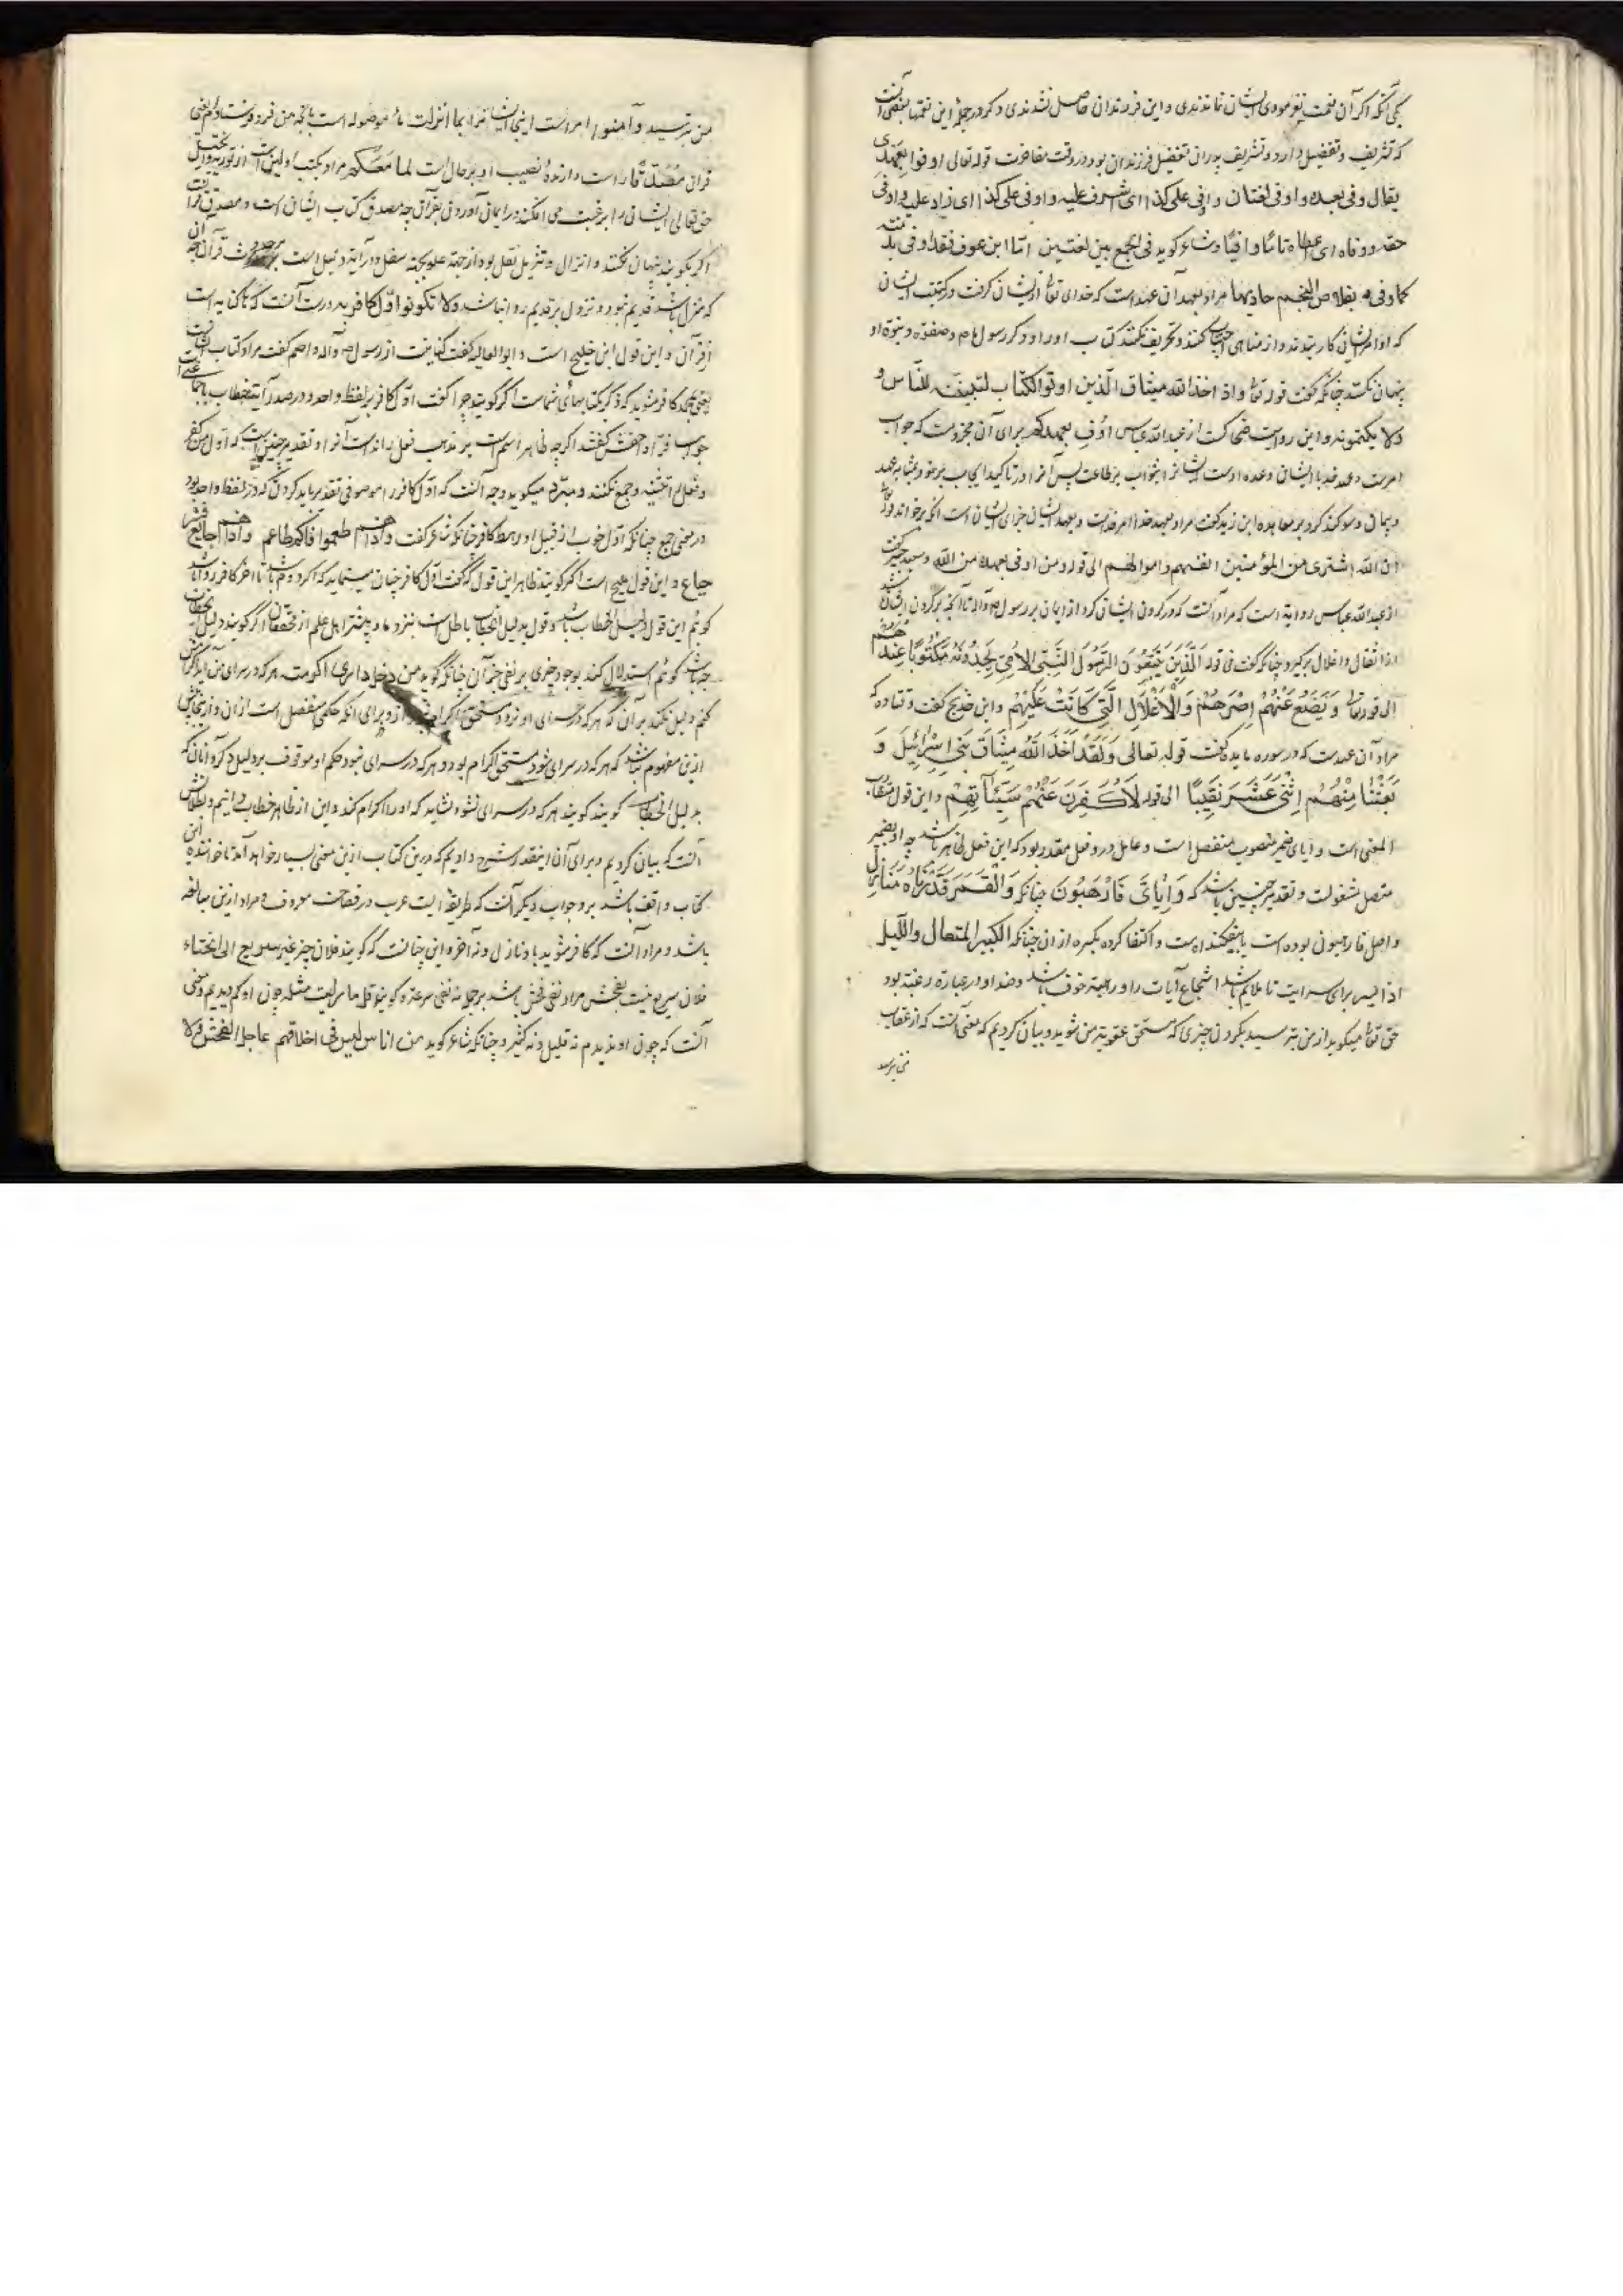 یکی آنکه اگر آن نعمت نفرمودی ایشان نماندندی و این فرزندان حاصل نشدندی دگر در جمله این نعمتها بعضی آنست
که تشریف و تفضیل دارد و تشریف پدران تفضیل فرزندان بود در وقت مفاخرت قوله تعالی اوفوا بعهدی
یقال وفی بعهده و اوفی لغتان و اوفی علی کذا ای اشرف علیه و اوفی علی کذا ای زاد علیه و اوفی
حقه و وفاه ای اعطاه تاما وافیا و شاعر گوید فی الجمع بین لغتین اما ابن عوف فقد اوفی بذمته
کما وفی بقلاص النجم حادیها مراد بعهد آن عهد است که خدای تعالی از ایشان گرفت در کتب ایشان
که اوامر ایشان کار بندند و از مناهی اجتناب کنند و تحریف نکنند کتاب او را و ذکر رسول ما و صفت و نبوة او
پنهان نکنند چنانکه گفت قوله تعالی و اذ اخذ الله میثاق الذین اوتوا الکتاب لتبیننه للناس و
لا یکتمونه و این روایت ضحاکست از عبدالله عباس اوف بعهدکم برای آن مجزومست که جواب
امرست و عهد خدا با ایشان وعده اوست ایشانرا بثواب بر طاعت پس آنرا در تاکید ایجاب بر خود بمثابه عهد
و پیمان و سوگند کرد بر معاهده ابن زید گفت مراد بعهد خدا امر خداست و بعهد ایشان جزای ایشان است آنکه برخواند قوله تعالی
ان الله اشتری من المؤمنین انفسهم و اموالهم الی قوله و من اوفی بعهده من الله و سعید جبیر گفت
از عبدالله عباس روایة است که مراد آنست که در گردن ایشان کرد از ایمان بر رسول و آله تا آنچه بر گردن ایشان باشد
از اثقال و اغلال برگیرد چنانکه گفت فی قوله اَلَّذِینَ یَتَّبِعُونَ الرَّسُولَ النَّبِیَّ الاُمِّیَّ یَجِدُونَهُ مَکْتُوبًا عِنْدَهُمْ
الی قوله تعالی وَ یَضَعُ عَنْهُمْ اِصْرَهُمْ وَ الْاَغْلَالَ الَّتِی کَانَتْ عَلَیْهِمْ و ابن جریج گفت و قتاده که
مراد آن عهدست که در سوره مایده گفت قوله تعالی وَ لَقَدْ اَخَذَ اللهُ مِیثَاقَ بَنِی اِسْرَائِیلَ وَ
بَعَثْنَا مِنْهُمُ اثْنَیْ عَشَرَ نَقِیبًا الی قوله لَاُکَفِّرَنَّ عَنْهُمْ سَیِّئَاتِهِمْ و این قول متقارب
المعنی است و ایای ضمیر منصوب منفصل است و عامل درو فعل مقدر بود که این فعل ظاهر باشد چه او بضمیر
متصل مشغولست و تقدیر چنین باشد که وَ اِیَّایَ فَارْهَبُونَ چنانکه وَ الْقَمَرَ قَدَّرْنَاهُ مَنَازِلَ
و اصل فارهبونی بوده است یا بیفکنده است و اکتفا کرده بکسره از آن چنانکه الکبیر المتعال و اللیل
اذا یسر برای سرایت تا ملایم باشد اشجاع آیات را و رهبة خوف باشد و ضد او در عبارة رغبة بود
حق تعالی میگوید از من بترسید بکردن چیزی که مستحق عقوبة من شوید و بیان کردیم که معنی آنست که از عقاب
من بترسید
من بترسید و آمنوا امر است اینجا ایشانرا بما انزلت ما موصوله است بآنچه من فرو فرستادم یعنی
قرآن مصدقا نصب او بر حال است لما معکم مراد بکتب اولین است از توریة و انجیل
حق تعالی ایشان را ترغیب می افکند در ایمان آوردن بقرآن چه مصدق کتاب ایشان است و مصدق
اگر بگویند پنهان نکنند و انزال و تنزیل نقل بود از جهة علو بجهة سفل و در آیة دلیل است بر حدوث قرآن
که منزل باشد قدیم نبود و نزول بر قدیم روا نباشد و لا تکونوا اول کافر به درست آنست که کنایه است
از قرآن و این قول ابن جریج است و ابوالعالیه گفت کنایتست از رسول و آله و اصم گفت مراد کتاب ایشانست
یعنی بمحمد کافر مشوید که ذکر بکتابهای شماست اگر گویند چرا گفت اول کافر بر لفظ واحد و در صدر آیة خطاب با جماعتی است
جواب فرا و اخفش گفتند اگر چه ظاهر اسم است بر مذهب فعل رانده است آنرا و تقدیر چنین است که اول من کفر
و فعل را تثنیه و جمع نکنند و مبرد میگوید وجه آنست که اول کافر را موصوفی تقدیر باید کردن که در لفظ واحد بود
در معنی جمع چنانکه اول حزب او قبیل او رهط کافر چنانکه شاعر گفت و اذا هم طعموا فالام طاعم و اذا هم جاعوا فشر
جیاع و این قول صحیح است اگر گویند ظاهر این قول که گفت اول کافر چنان مینماید که اگر دوم باشد تا آخر کافر روا باشد
گوئیم این قول دلیل الخطاب باشد و قول بدلیل الخطاب باطل است بنزد ما و بیشتر اهل علم از محققان اگر گویند دلیل الخطاب
چه باشد گوئیم استدلال کنند بوجود چیزی بر نفی جز آن چنانکه گوید من دخل داری اکرمته هر که در سرای من آید اکرامش
کنم دلیل نکند بر آن که هر که در سرای او نرود مستحق اکرام نبود ازو برای آنکه حکمی منفصل است از آن و از جایش
ازین مفهوم نباشد که هر که در سرای شود مستحق اکرام بود و هر که در سرای نبود حکم او موقوف بر دلیل دگر و آنان که
بدلیل الخطاب گویند گویند هر که در سرای نشود نشاید که او را اکرام کند و این از ظاهر خطاب دانیم و بطلانش
آنست که بیان کردیم و برای آن اینقدر شرح دادیم که درین کتاب ازین معنی بسیار خواهد آمد تا خواننده این
کتاب واقف باشد برو جواب دیگر آنست که طریقه ایست عرب در فصاحت معروف و مراد ازین مبالغه
باشد و مراد آنست که کافر مشوید باو نه اول و نه آخر و این چنانست که گویند فلان چیز غیر سریع الی الخناء
فلان سریع نیست بفحش مراد نفی فحش باشد بر جمله نه نفی سرعة و گویند قل ما رایت مثله چون او کم دیدیم و معنی
آنست که چون او ندیدم نه قلیل و نه کثیر و چنانکه شاعر گوید من اناس لیس فی اخلاقهم عاجل الفحش و لا